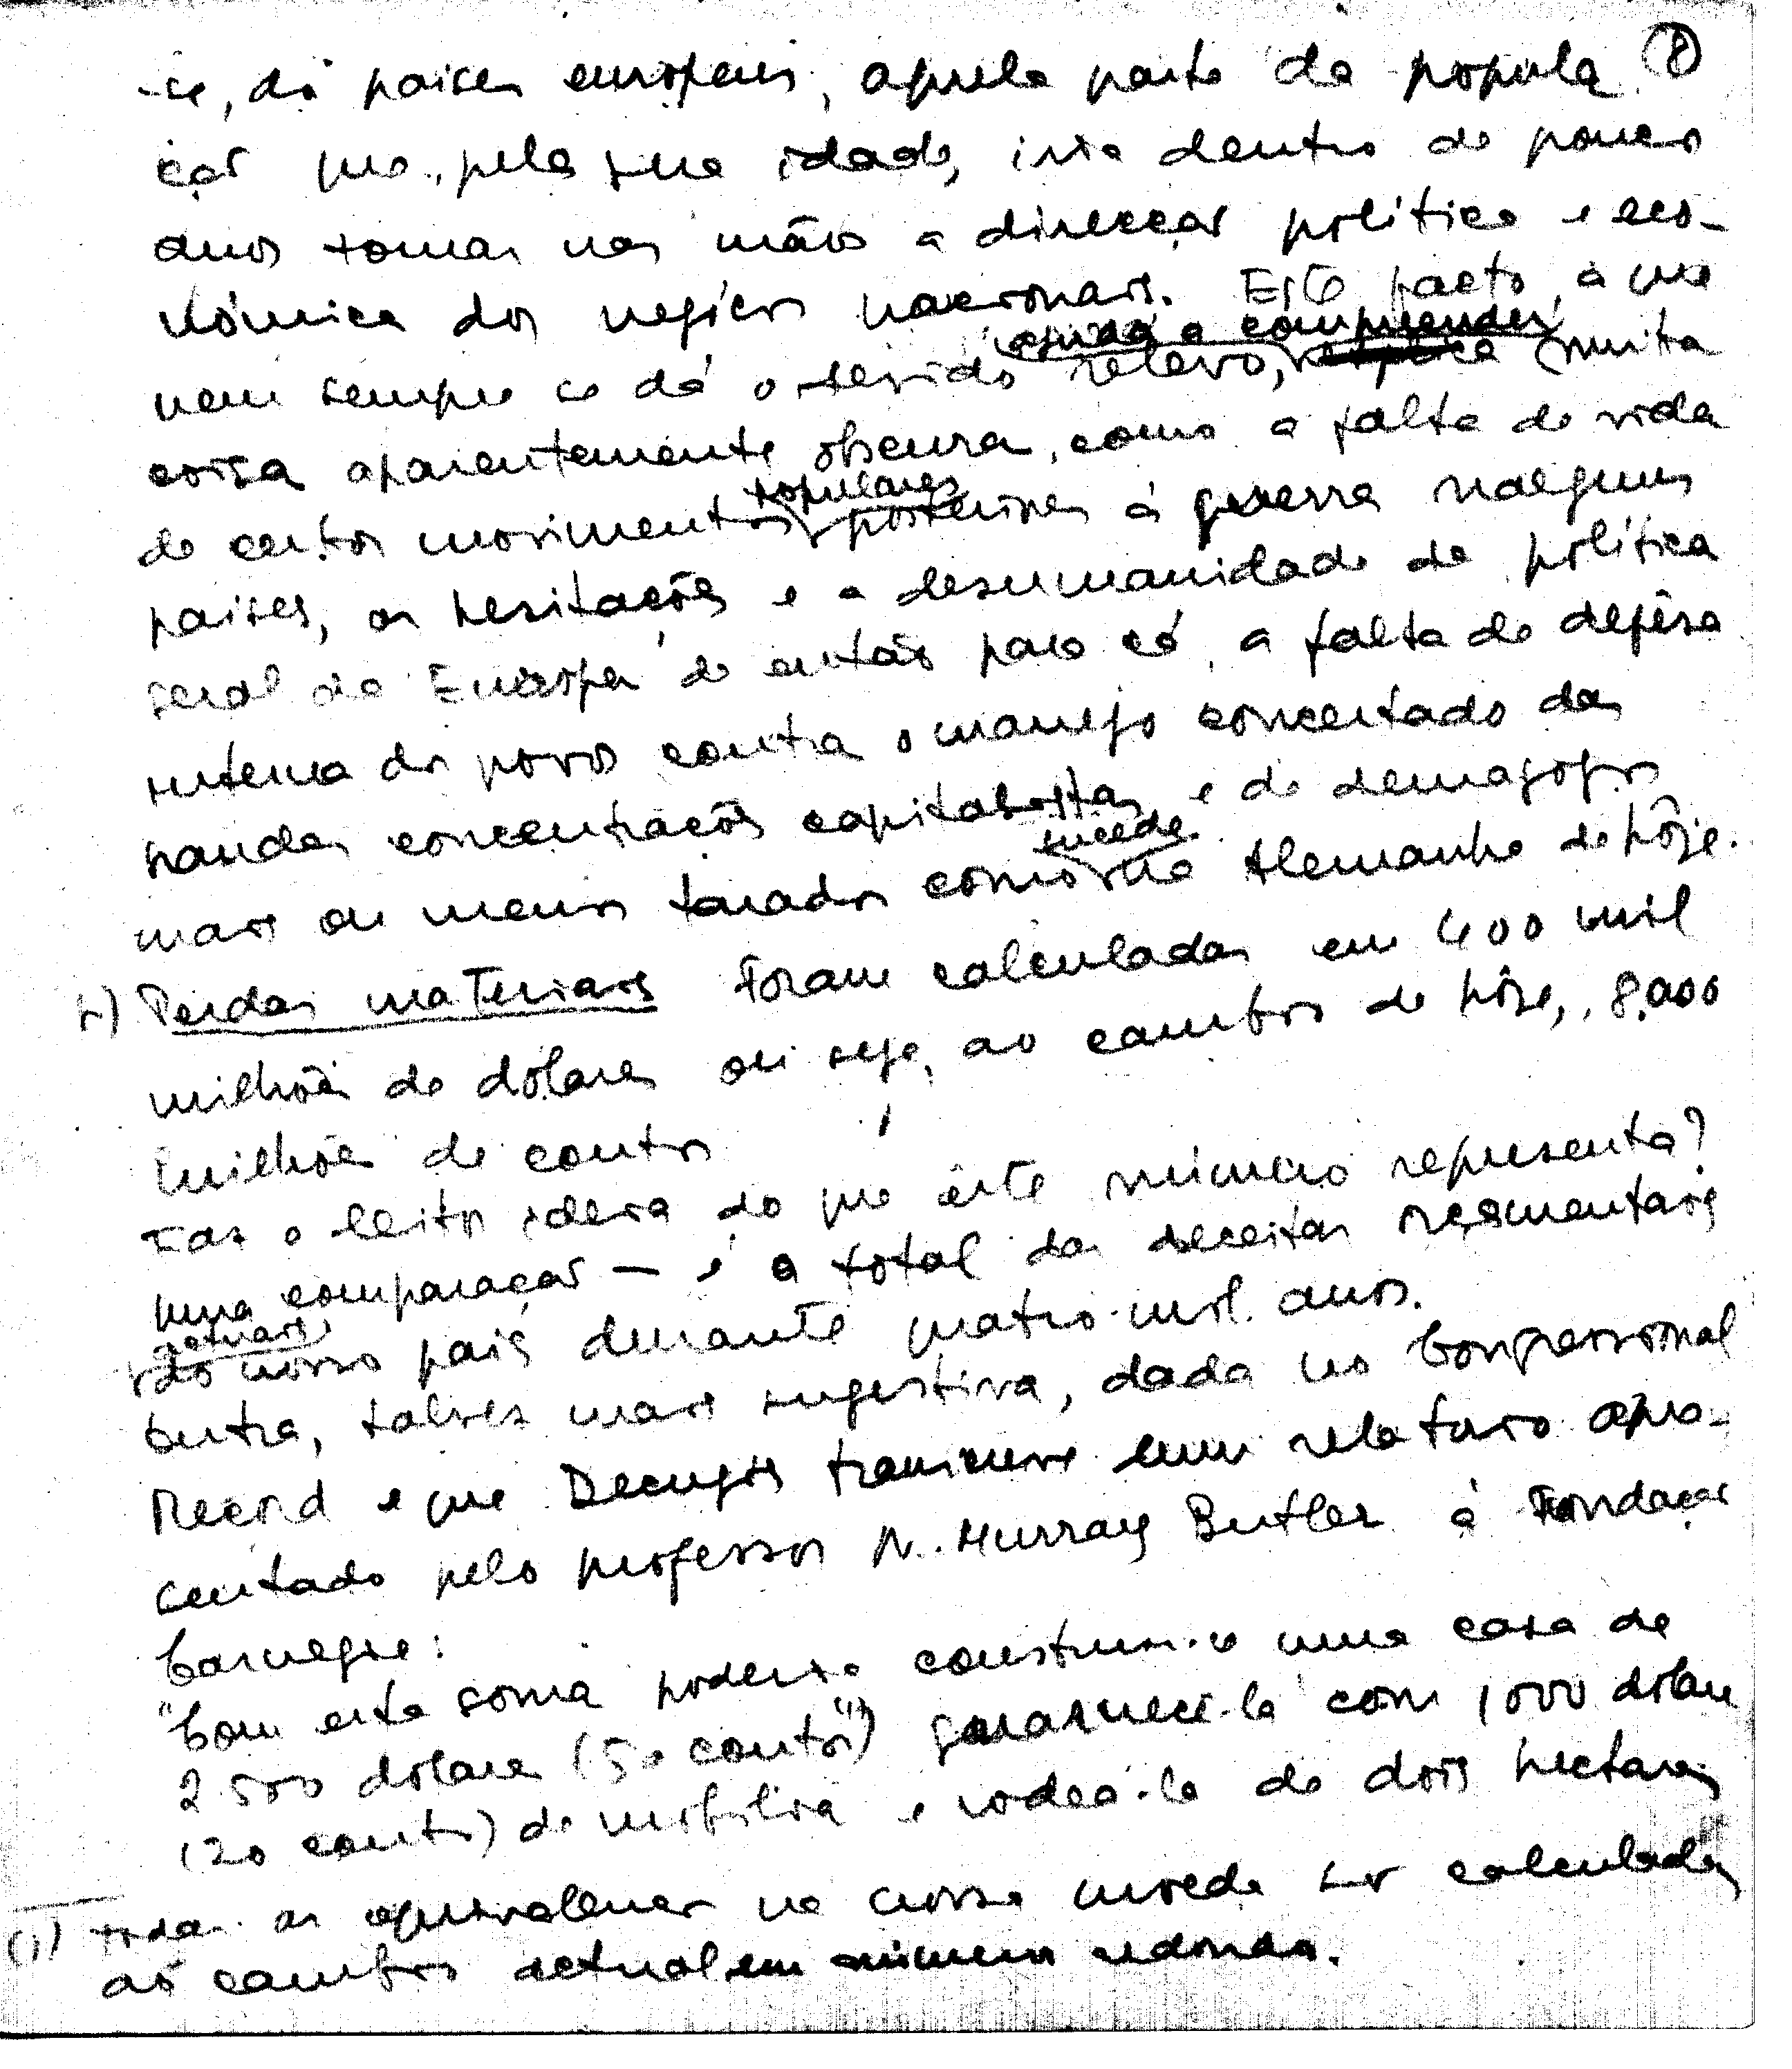 -ce, dos paises europeus, aquela parte da popula 8
ção que, pela sua idade, iria dentro de poucos
anos tomar nas mãos a direcção política e eco-
nómica dos negócios nacionais. Este facto, a que
nem sempre se dá o devido relevo, ajuda a compreender muita
coisa aparentemente obscura, como a falta de vida
de certos movimentos populares posteriores à guerra nalguns
paises, as hesitações e a desumanidade da política
geral da Europa de então para cá, a falta de defêsa
interna dos povos contra o manejo concertado das
grandes concentrações capitalistas e de demagogos
mais ou menos tarados como sucede na Alemanha de hôje.
b) Perdas materiais Foram calculadas em 400 mil
milhões de dólares ou seja, ao cambio de hôje, 8.000
milhões de contos
Faz o leitor ideia do que êste número representa?
Uma comparação — é o total das receitas orçamentais
actuais do nosso país durante quatro mil anos.
Outra, talvez mais sugestiva, dada no Congressional
Record e que Decugis transcreve num relatorio apre-
sentado pelo professor N. Murray Butler à Fundação
Carnegie:
"Com esta soma poderia construir-se uma casa de
2.500 dólares (50 contos (1)) guarnecê-la com 1000 dólares
(20 contos) de mobilia e rodeá-la de dois hectares
(1) todas as equivalencias na nossa moeda são calculadas
ao cambio actual em números redondos.